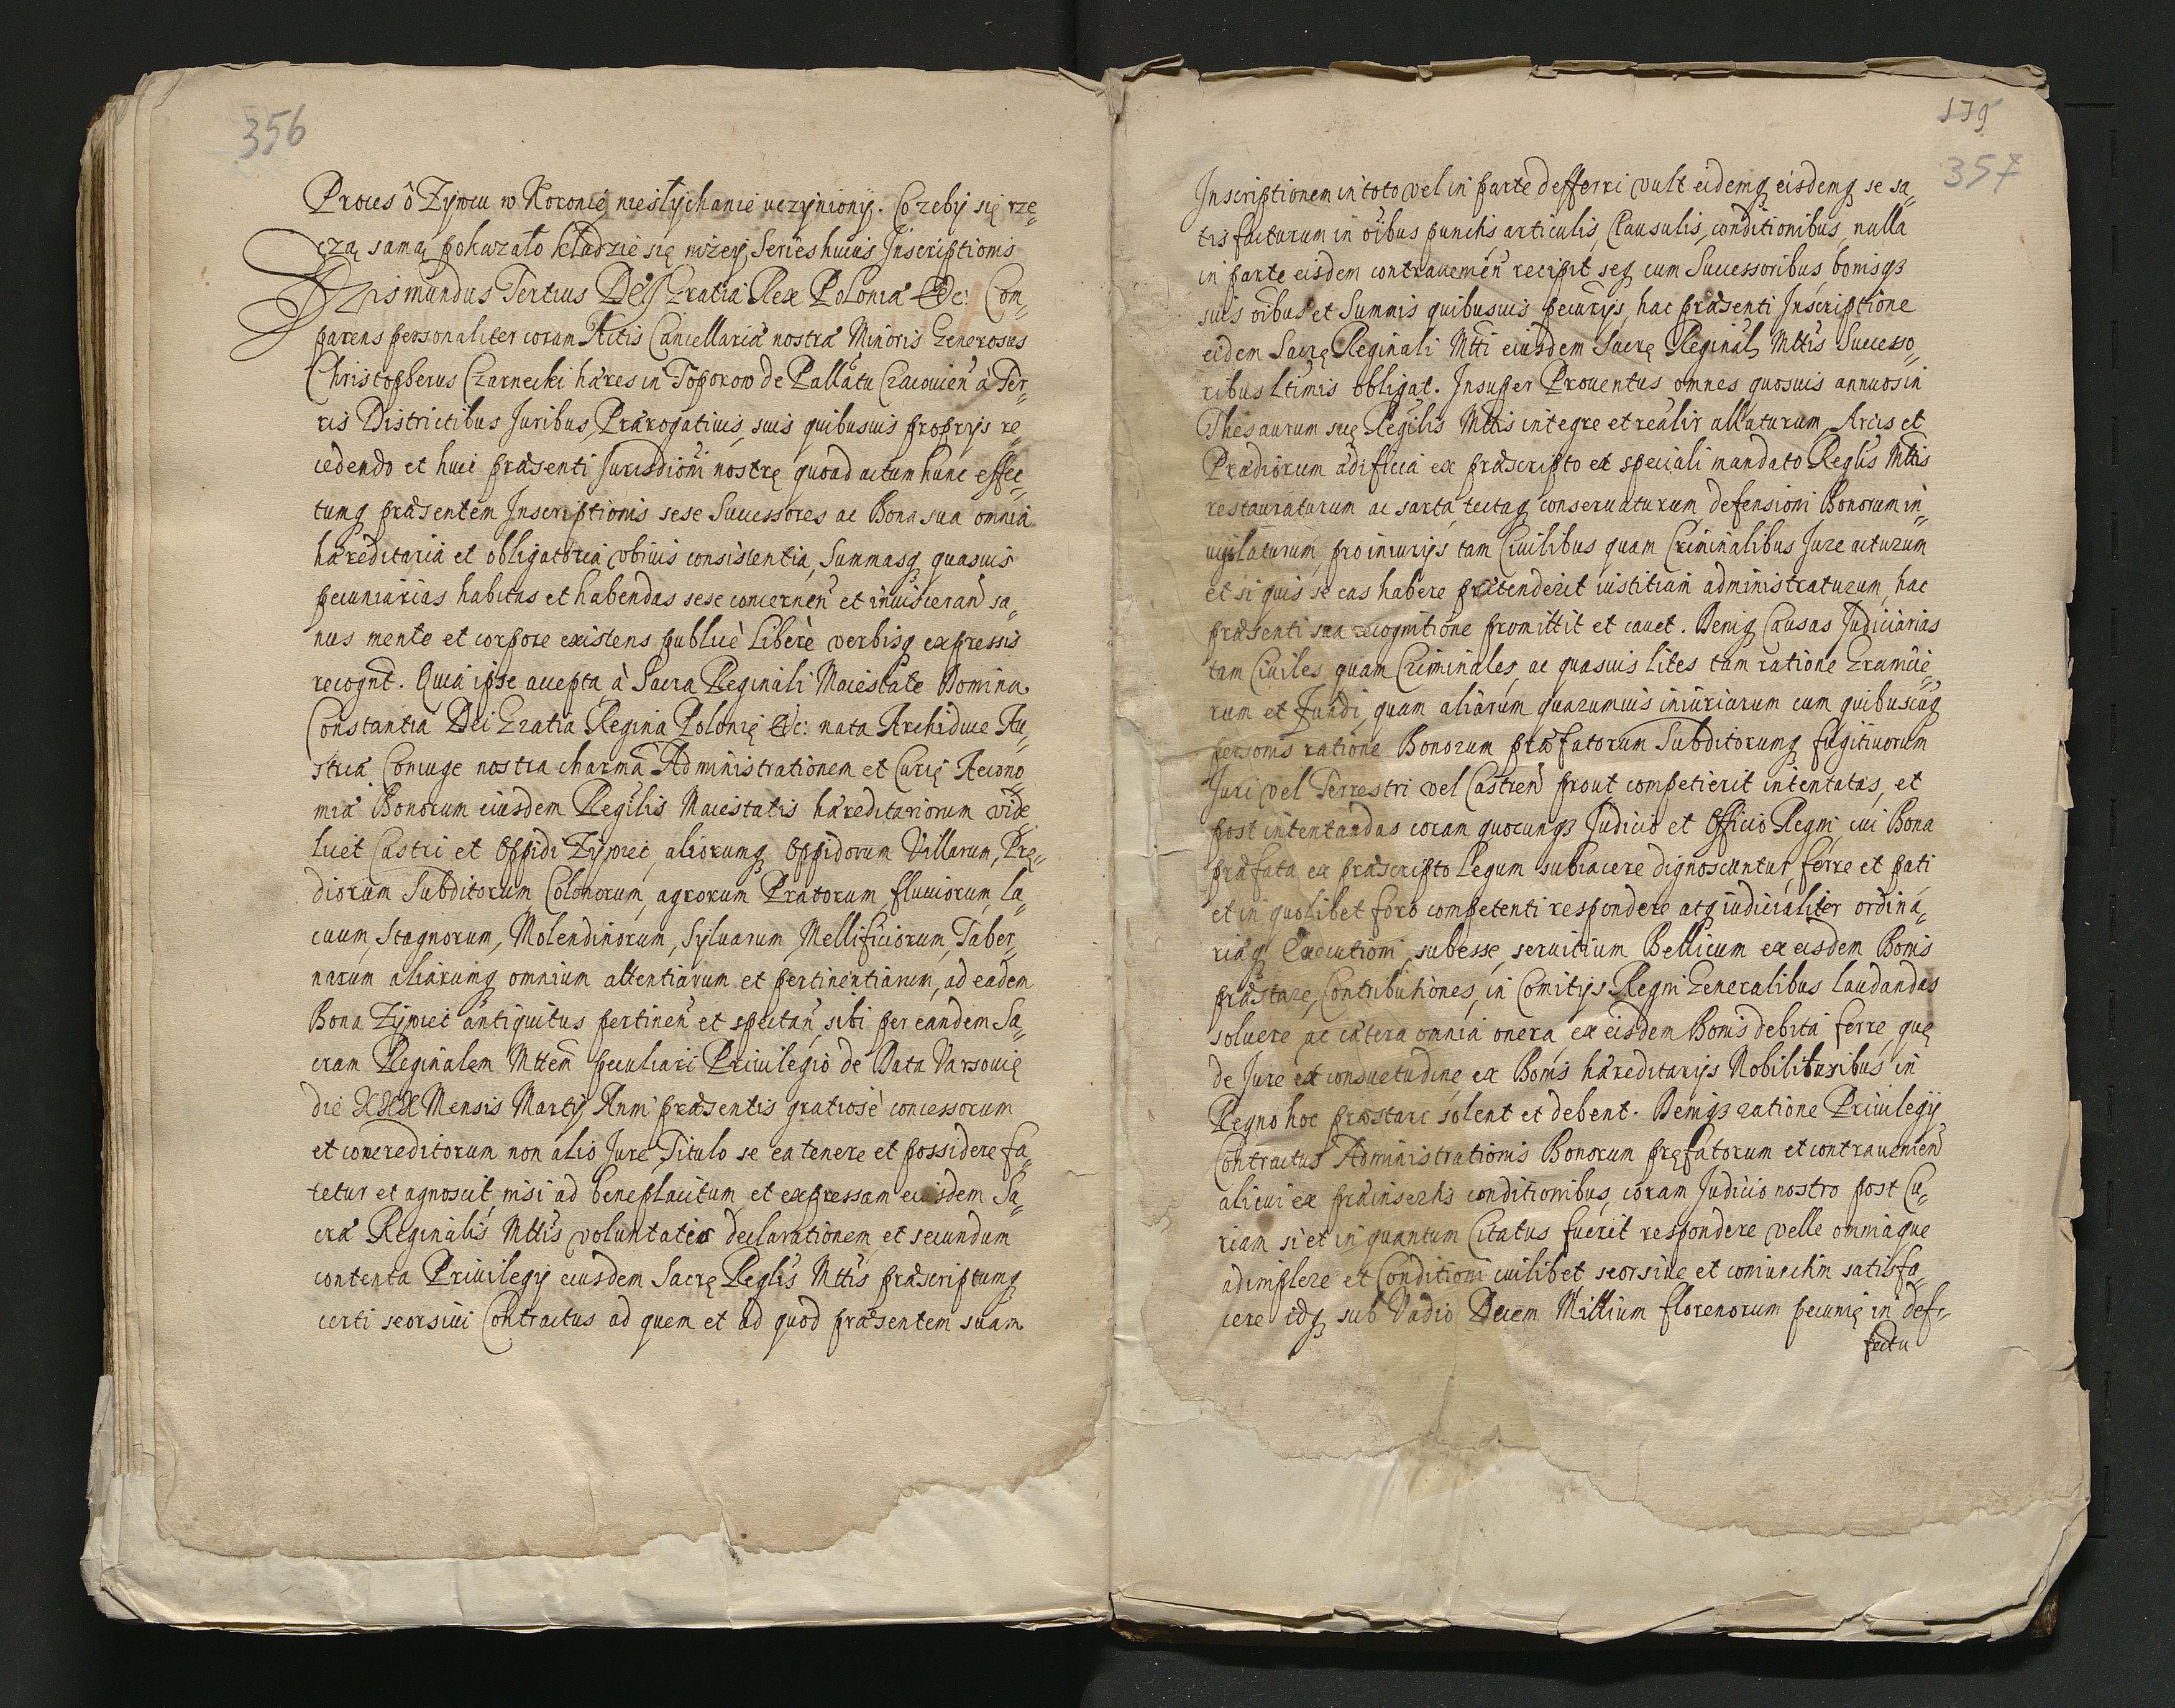 356
Proces ô Zywcu w Koronię niesłychanie uczyniony. Co zeby się rze¬
czą samą pokazało kładzie się nizey Series huius Inscriptionis
Sigismundus Tertius Dei Gratia Rex Poloniæ &c: Com¬
parens personaliter coram Actis Cancellariæ nostræ Minoris Generosus
Christopherus Czarnecki hæres in Toporow de Pallatu Cracouien̄ à Ter¬
ris Districtibus Juribus, Prærogatiuis, suis quibusuis proprys re¬
cedendo et huic præsenti Jurisdioni nostrę quoad actum hunc effec¬
tumq præsentem Inscriptionis sese Successores ac Bona sua omnia
hæreditaria et obligatoria vbiuis consistentia, Summasq quasuis
pecuniarias habitas et habendas sese concernen̄ et inuisceran̄ sa¬
nus mente et corpore existens publicè Liberè verbisq expressis
recognt. Quia ipse accepta à Sacra Reginali Maiestate Domina
Constantia Dei Gratia Regina Polonię &c: nata Archiduce Au¬
striæ Coniuge nostra charma Administrationem et Curię Aecono
miæ Bonorum eiusdem Regilis Maiestatis hæreditariorum vide
licet Castri et Oppidi Zywiec, aliorumq Oppidorum Villarum, Prę¬
diorum Subditorum, Colonorum, agrorum Pratorum, fluuiorum, la¬
cuum, Stagnorum, Molendinorum, Syluarum, Mellificiorum, Taber¬
narum aliarumq omnium attentiarum et pertinentiarum, ad eadem
Bona Zywiec antiquitus pertinen̄ et spectan̄, sibi per eandem Sa¬
cram Reginalem Mttem peculiari Priuilegio de Data Varsouię
die XXX Mensis Marty Anni præsentis gratiosè concessorum
et concreditorum non alio Jure, Titulo se ea tenere et possidere fa¬
tetur et agnoscit, nisi ad beneplacitum et expressam eiusdem Sa¬
cræ Reginalis Mttis voluntatis declarationem, et secundum
contenta Priuilegij eiusdem Sacrę Reglis Mttis præscriptumq
certi seorsiui Contractus ad quem et ad quod præsentem suam
179
357
Inscriptionem in toto vel in parte defferri vult eidemq eisdemq se sa¬
tis facturum in oibus punctis articulis, Clausulis, conditionibus, nulla
in parte eisdem contrauemen̄ recipit seq cum Successoribus bonisqз
suis oibus et Summis quibusuis pecurys, hac præsenti Inscriptione
eidem Sacrę Reginali Mtti eiusdem Sacrę Reginal, Mttis Successo¬
ribus Ltimis obligat. Insuper Prouentus omnes quosuis annuos in
Thesaurum suę Regilis Mttis integre et realir allaturum, Arcis et
Prædiorum ædificia ex præscripto et speciali mandato Reglis Mttis
restauraturum ac sarta tectaq conseruaturum defensioni Bonorum in¬
uigilaturum, pro iniurys tam Ciuilibus quam Criminalibus Jure acturum
et si quis se eas habere prætenderit iustitiam administraturum, hac
præsenti sua recognitione promittit et cauet. Deniq Causas Judiciarias
tam Ciuiles quam Criminales, ac quasuis lites tam ratione Granicie¬
rum et Fundi, quam aliarum quarumuis iniuriarum cum quibuscuq
personis ratione Bonorum præfatorum Subditorumq fugitiuorum
Juri vel Terrestri vel Castren̄ prout competierit intentatas, et
post intentandas coram quocunqз Judicio et Officio Regni, cui Bona
præfata ex præscripto Legum subiacere dignoscuntur, ferre et pati
et in quolibet foro competenti respondere atq iudicialiter ordina¬
riæq Executioni, subesse, seruitium Bellicum ex eisdem Bonis
præstare, Contributiones, in Comitys Regni Generalibus laudandas
soluere ac cætera omnia onera ex eisdem Bonis debita ferre, quę
de Jure et consuetudine ex Bonis hæreditarys Nobilitaribus in
Regno hoc præstari solent et debent. Deniqз ratione Priuilegij
Contractus Administrationis Bonorum pręfatorum et contrauenien̄
alicui ex præinsertis conditionibus, coram Judicio nostro post Cu¬
riam si et in quantum Citatus fuerit respondere velle omniaque
adimplere et Conditioni cuilibet seorsiue et coniunctim satisfa¬
cere idq sub Vadio Decem Millium florenorum pecunię in def¬
fectu